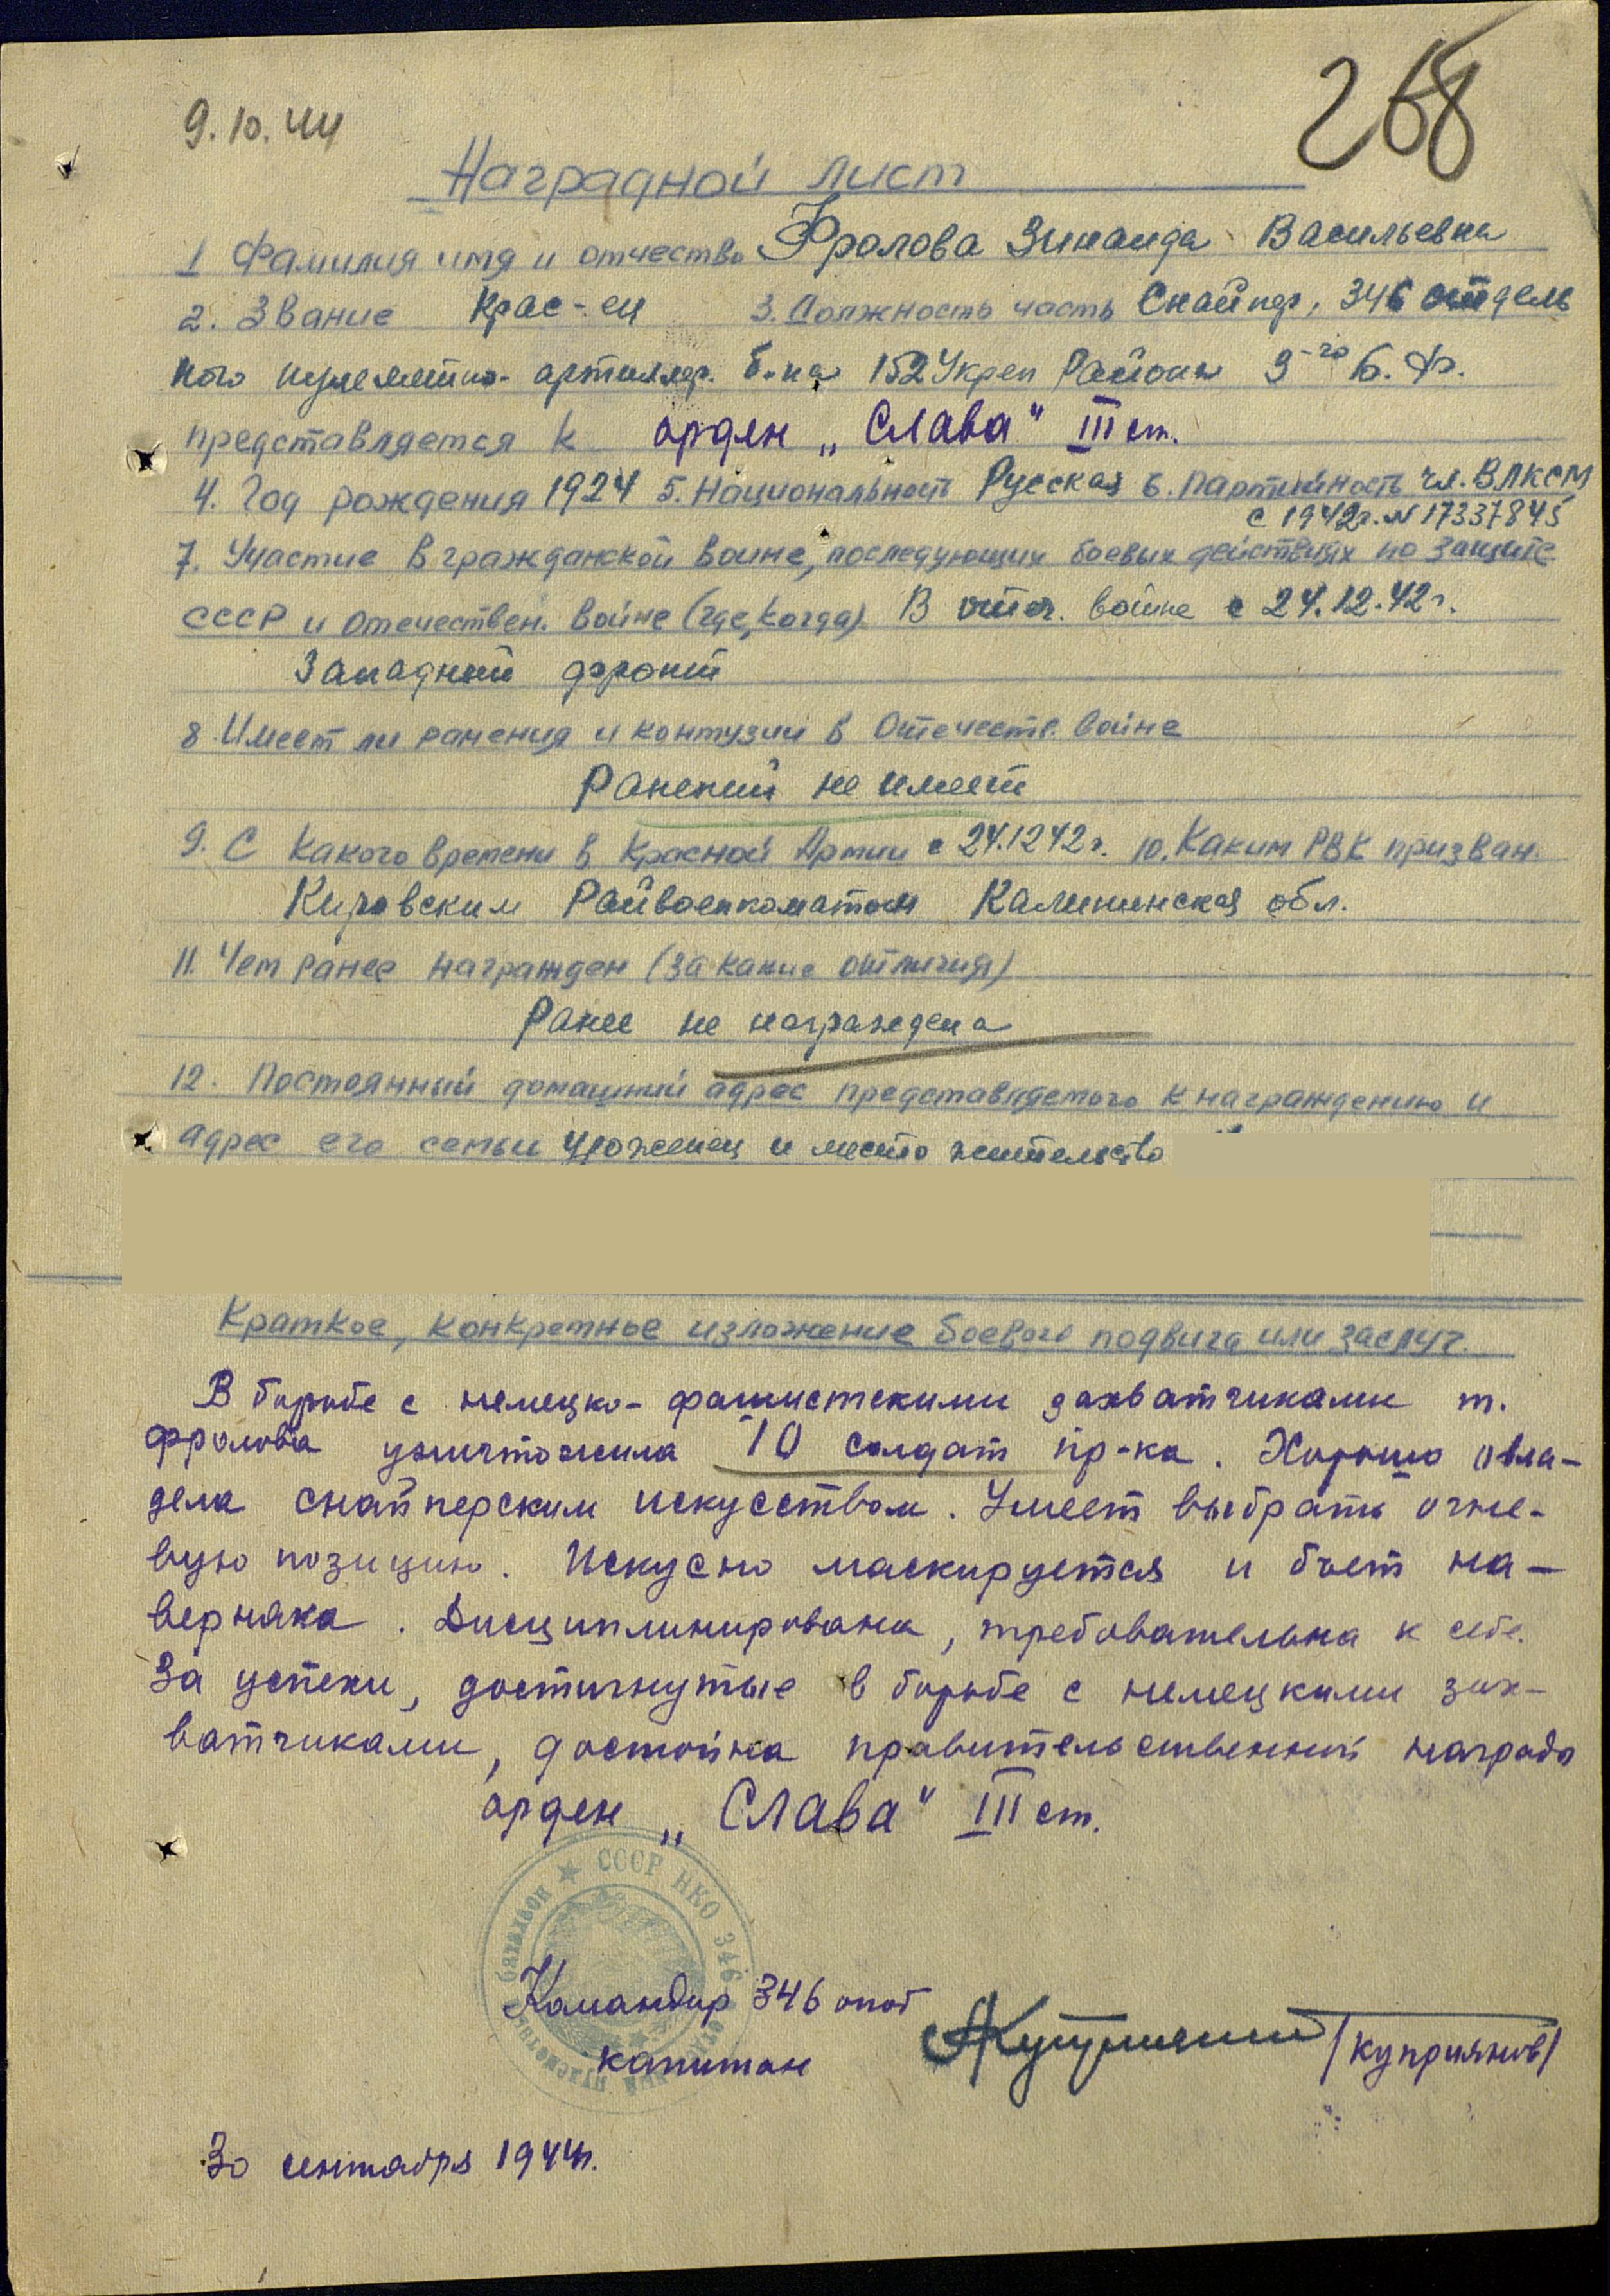 268
9.10.44
Наградной лист
1 Фамилия имя и отчество Фролова Зинаида Васильевна
2. Звание Крас-ец 3. Должность часть Снайпер, 346 отдель
ного пулеметно-артиллер. б-на 152 Укреп Района 3-го Б.Ф.
представляется к орден „Слава" III ст.
4. Год рождения 1924 5. Национальность Русская 6. Партийность чл. ВЛКСМ
с 1942г. № 17337845
7. Участие в гражданской воине, последующих боевых действиях по защите
СССР и отечествен. войне (где, когда) В отеч. войне с 24.12.42 г.
Западный фронт
8 Имеет ли ранения и контузии в Отечеств. войне
Ранений не имеет
9. С какого времени в Красной Армии с 24.12 42 г. 10. Каким РВК призван.
Кировским Райвоенкоматом Калининская обл.
11. Чем ранее награжден (за какие отличия)
Ранее не награждена
12. Постоянный домашний адрес представляемого к награждению и
адрес его семьи уроженец и место жительство
Краткое, конкретное изложение боевого подвига или заслуг.
В борьбе с немецко-фашистскими захватчиками т.
Фролова уничтожила 10 солдат пр-ка. Хорошо овла-
дела снайперским искусством. Умеет выбрать огне-
вую позицию. Искусно маскируется и бьет на-
верняка. Дисциплинирована, требовательна к себе.
За успехи, достигнутые в борьбе с немецкими зах-
ватчиками, достойна правительственной награды
орден „Слава" III ст.
СССР НКО 346 батальон
Командир 346 опаб
капитан /Куприянов/
30 сентября 1944г.